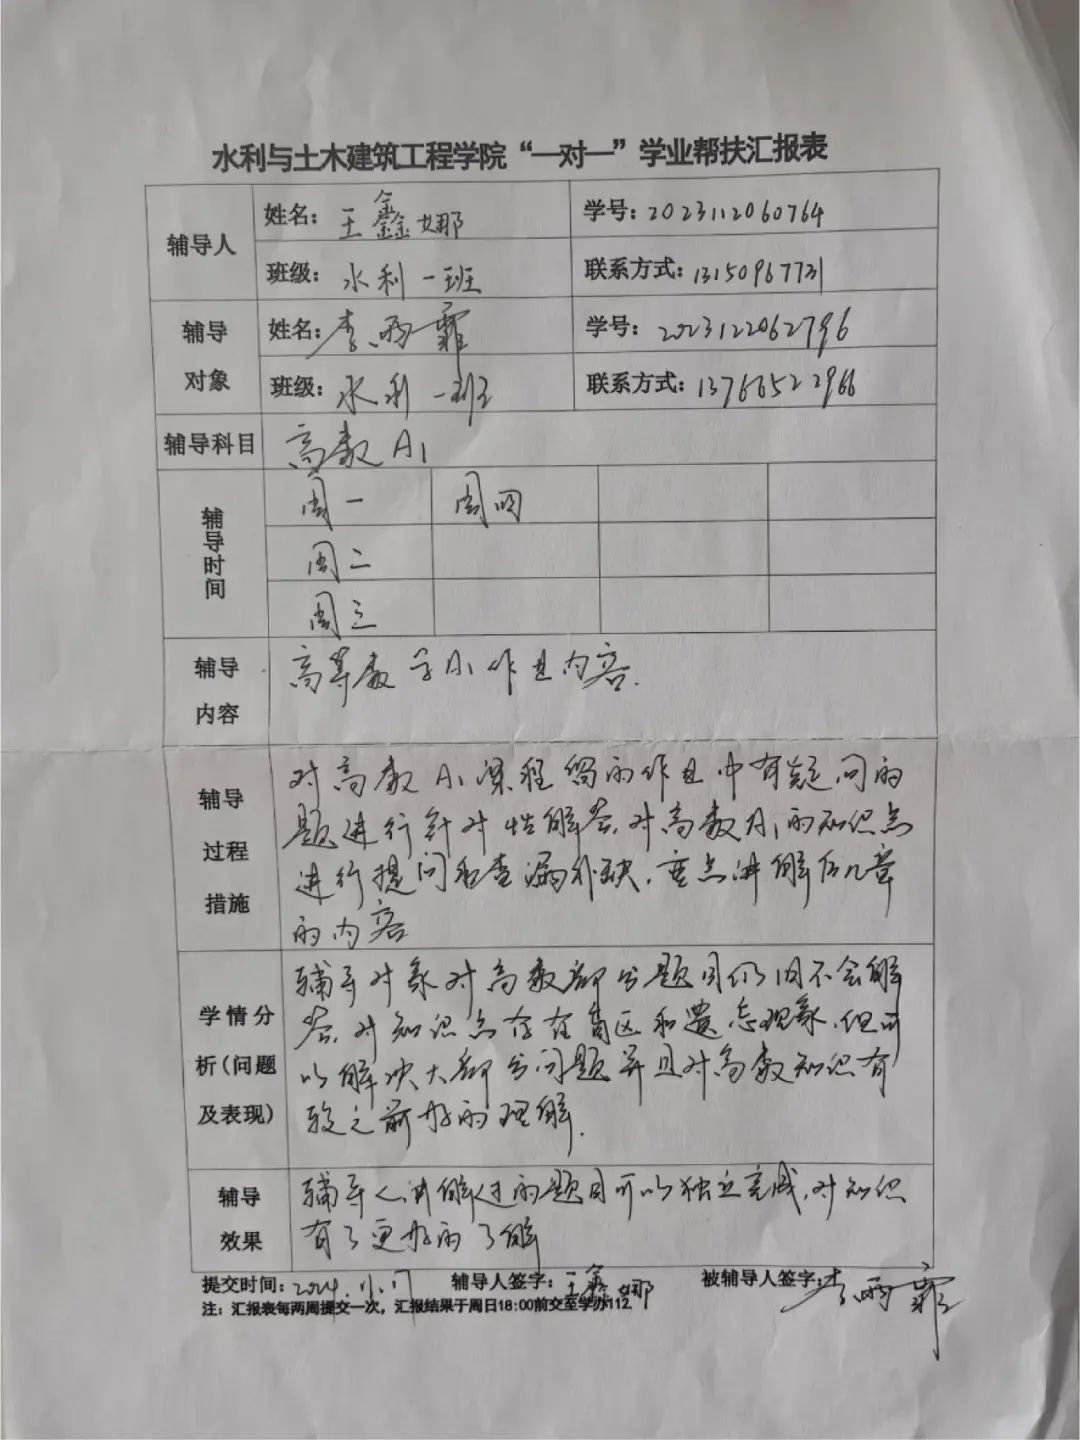 水利与土木建筑工程学院“一对一”学业帮扶汇报表
辅导人
姓名：王鑫娜
学号：2023112060764
班级：水利一班
联系方式：13150967731
辅导
对象
姓名：李雨霏
学号：2023122062796
班级：水利一班
联系方式：13766522966
辅导科目
高数A1
辅导时间
周一
周四
周二
周三
辅导
内容
高等数学A1作业内容.
辅导
过程
措施
对高数A1课程留的作业中有疑问的
题进行针对性解答,对高数A1的知识点
进行提问和查漏补缺,重点讲解后几章
的内容
学情分
析(问题
及表现)
辅导对象对高数部分题目仍旧不会解
答,对知识点存在盲区和遗忘现象,但可
以解决大部分问题并且对高数知识有
较之前好的理解.
辅导
效果
辅导人讲解过的题目可以独立完成,对知识
有了更好的了解
提交时间：2024.11.17 辅导人签字：王鑫娜 被辅导人签字：李雨霏
注：汇报表每两周提交一次，汇报结果于周日18:00前交至学办112.